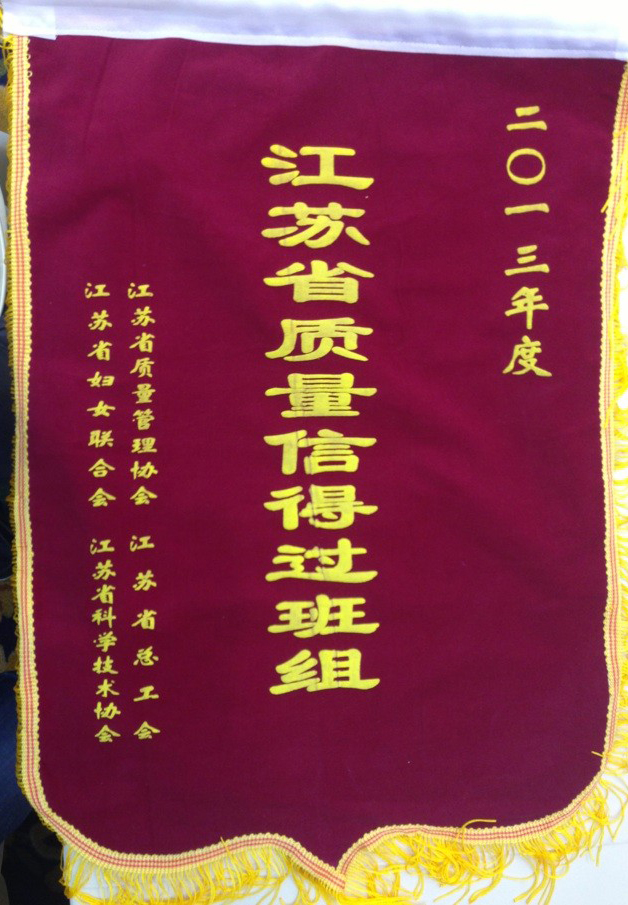 二〇一三年度
江苏省质量信得过班组
江苏省质量管理协会
江苏省总工会
江苏省妇女联合会
江苏省科学技术协会